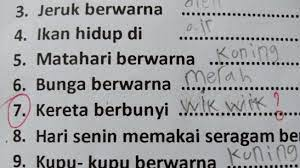 3. Jeruk berwarna ..........
4. Ikan hidup di air
5. Matahari berwarna Koning
6. Bunga berwarna merah
7. Kereta berbunyi wik wik ?
8. Hari senin memakai seragam be
9. Kupu- kupu berwarna Kuning